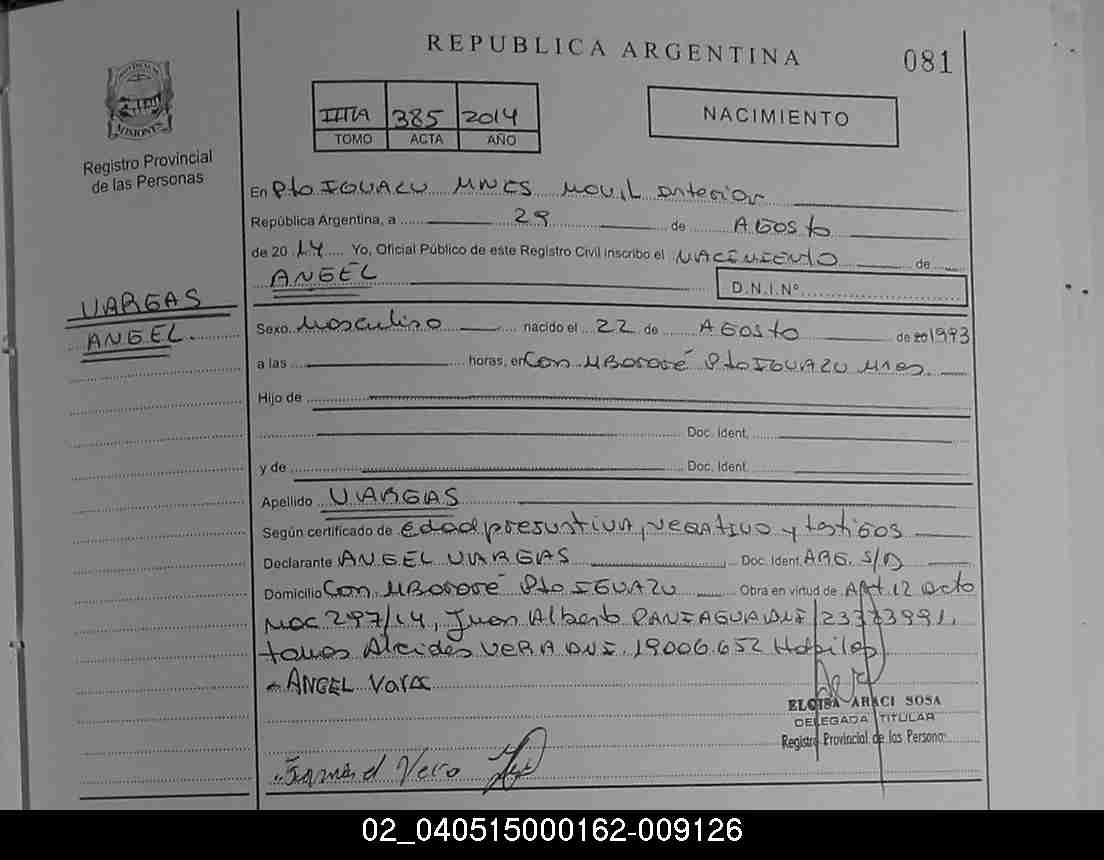 REPUBLICA ARGENTINA
081
385 2014
TOMO ACTA AÑO
NACIMIENTO
MISIONES
Registro Provincial
de las Personas
En Pto IGUAZU MNES MOVIL Interior
República Argentina, a 29 de AGosto
de 20 14 Yo, Oficial Público de este Registro Civil inscribo el NACIMIENTO de
ANGEL
D.N.I.Nº
VARGAS
ANGEL
Sexo Masculino nacido el 22 de AGosto de 20 1993
a las horas, en Com MBororé Pto IGUAZU Mnes
Hijo de
Doc. Ident.
y de Doc. Ident.
Apellido VARGAS
Según certificado de edad presuntiva, negativo y testigos
Declarante ANGEL VARGAS Doc. Ident. ARG. S/D
Domicilio Com MBororé Pto IGUAZU Obra en virtud de Art 12 Dcto
297/14, Juan Alberto PANIAGUA DNI
Alcides VERA DNI. 19006.652 Habiles
ANGEL
ELOISA ARACI SOSA
DELEGADA TITULAR
Registro Provincial de las Personas
02_040515000162-009126